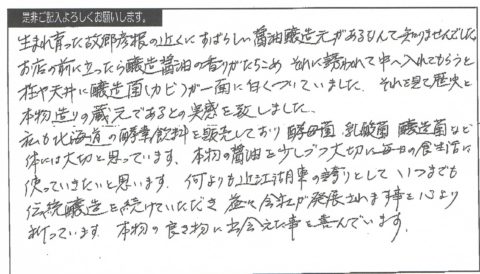 是非ご記入よろしくお願いします。
生まれ育った故郷彦根の近くにすばらしい醤油醸造元があるなんて知りませんでした。
お店の前に立ったら醸造醤油の香りがたちこめ それに誘われて中へ入れてもらうと
柱や天井に醸造菌(カビ)が一面に白くついていました。それを見て歴史と
本物造りの蔵元であるとの実感を致しました。
私も北海道の酵素飲料を販売しており 酵母菌、乳酸菌 醸造菌など
体には大切と思っています。本物の醤油を少しづつ大切に毎日の食生活に
使っていきたいと思います。何よりも近江湖東の誇りとしていつまでも
伝統醸造を続けていただき 益々会社が発展されます事を心より
祈っています。本物の良き物に出会えた事を喜んでいます。